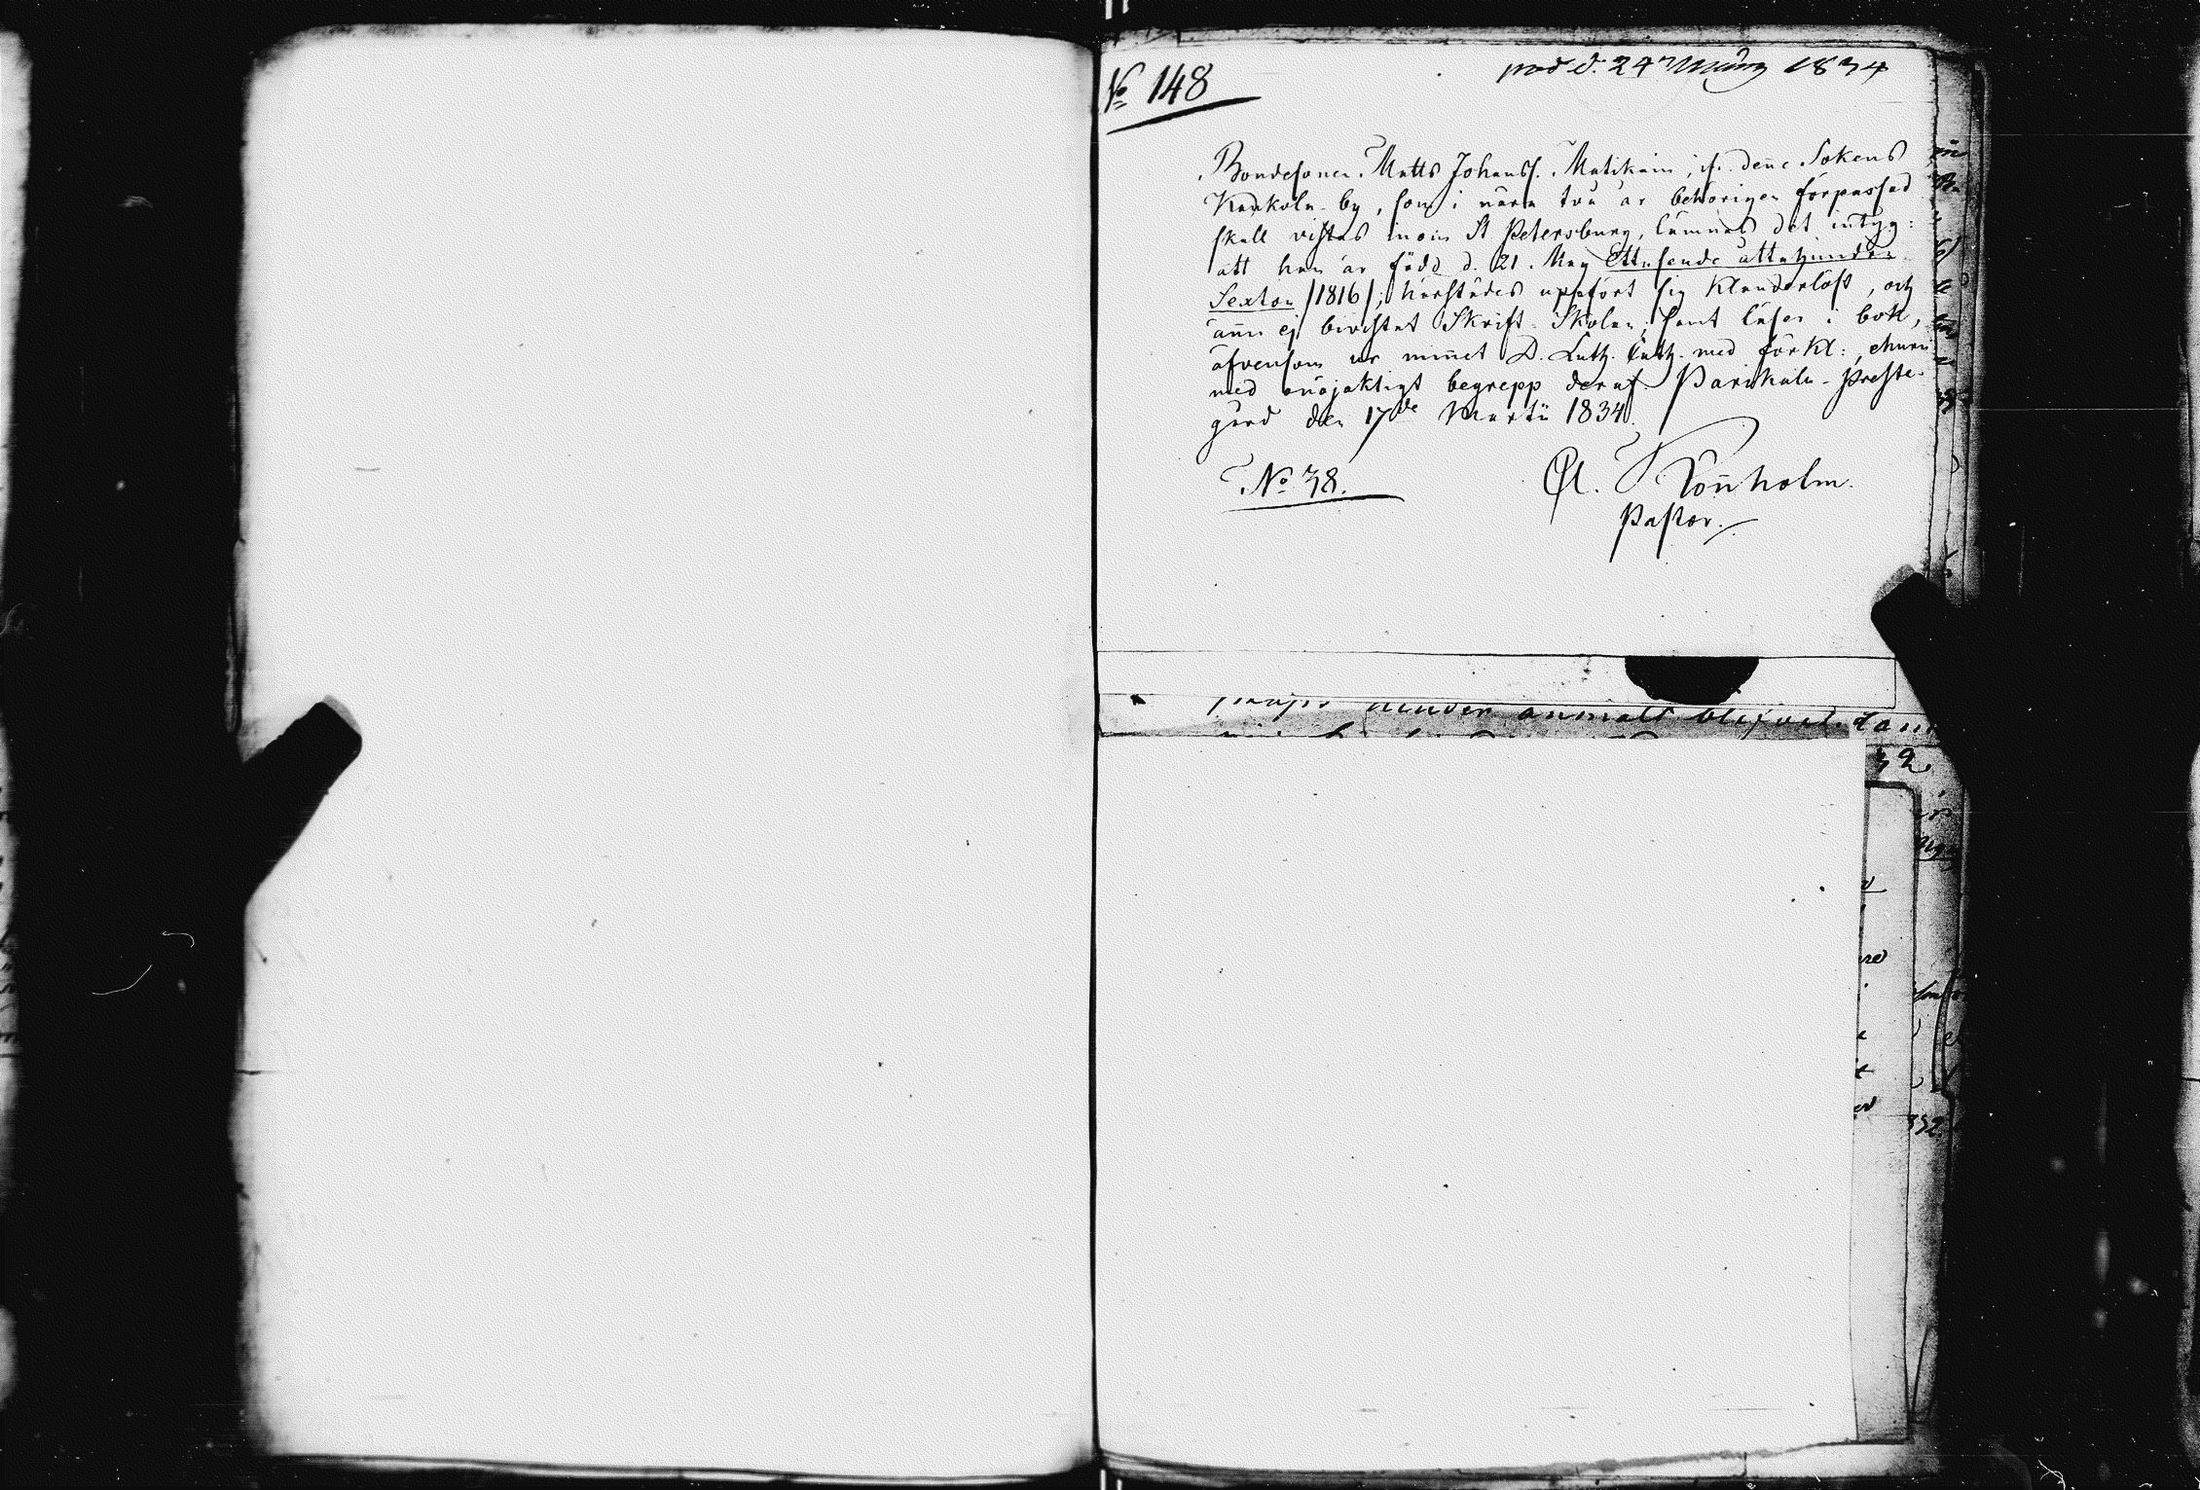 № 148
prod d. 24 März 1834
Bondesonen Matts Johanss. Matikain, ifr. denne Sokens
Kankola by, som i nära två år behörigen förpassad
skall vistas inom St Petersburg, lämnas det intyg:
att han är född d. 21. May Ettusende åttahundra
Sexton /1816/; härstädes uppfört sig klanderlöst, och
ännu ej bivistat Skrift-Skolan; samt läser i bok,
äfvensom ur minnet D. Luth. Cath. med förkl:, ehuru
med onöjaktigt begrepp deraf. Parikala-Preste-
gård den 17de Martii 1834.
№ 38.
Pastor.
anmält blifvit
32